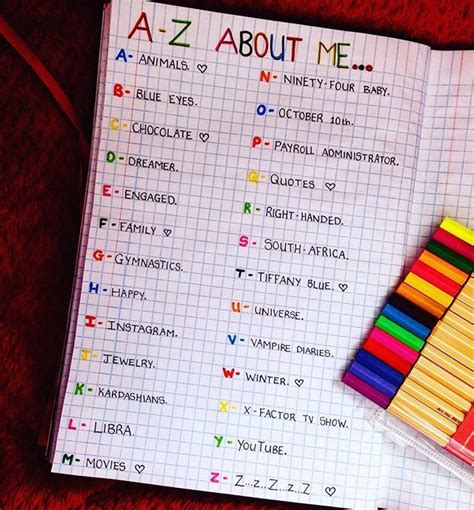 A-Z ABOUT ME...
A- ANIMALS. ♡
B- BLUE EYES.
C- CHOCOLATE ♡
D- DREAMER.
E- ENGAGED.
F- FAMILY ♡
G- GYMNASTICS.
H- HAPPY.
I- INSTAGRAM.
J- JEWELRY.
K- KARDASHIANS.
L- LIBRA.
M- MOVIES ♡
N- NINETY-FOUR BABY.
O- OCTOBER 10th.
P- PAYROLL ADMINISTRATOR.
Q- QUOTES ♡
R- RIGHT-HANDED.
S- SOUTH-AFRICA.
T- TIFFANY BLUE. ♡
U- UNIVERSE.
V- VAMPIRE DIARIES.
W- WINTER. ♡
X- X-FACTOR TV SHOW.
Y- YOUTUBE.
Z- Z...Z...Z...Z ♡